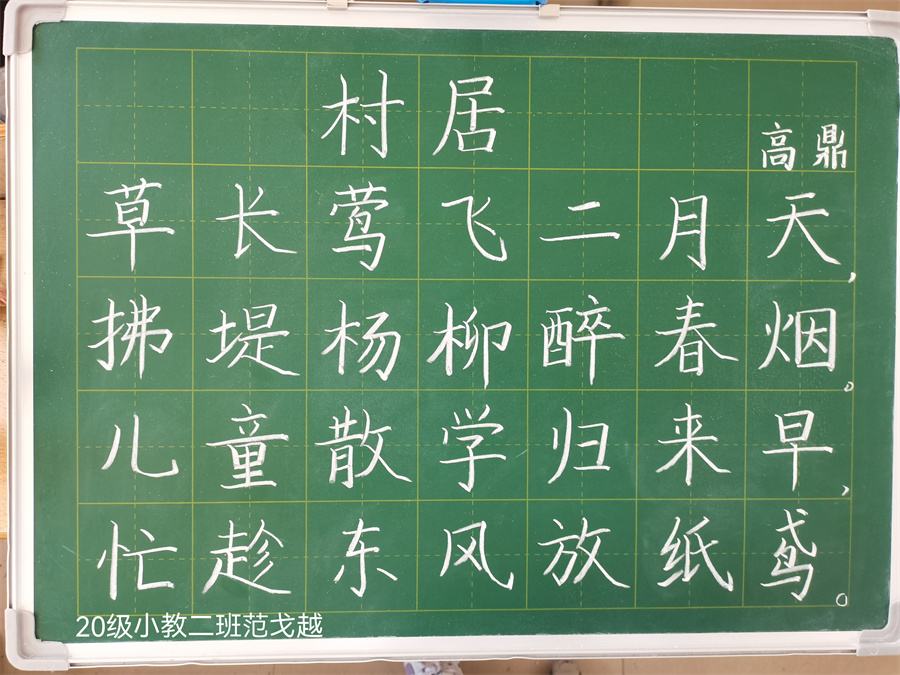 村居
高鼎
草长莺飞二月天，
拂堤杨柳醉春烟。
儿童散学归来早，
忙趁东风放纸鸢。
20级小教二班范戈越